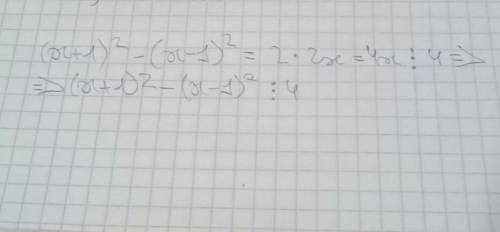 (x+1)² - (x-1)² = 2·2x = 4x ⋮ 4 =>
=> (x+1)² - (x-1)² ⋮ 4